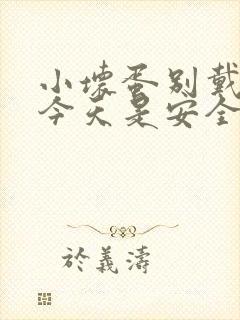 小壞蛋别戴
今天是安全
於義濤